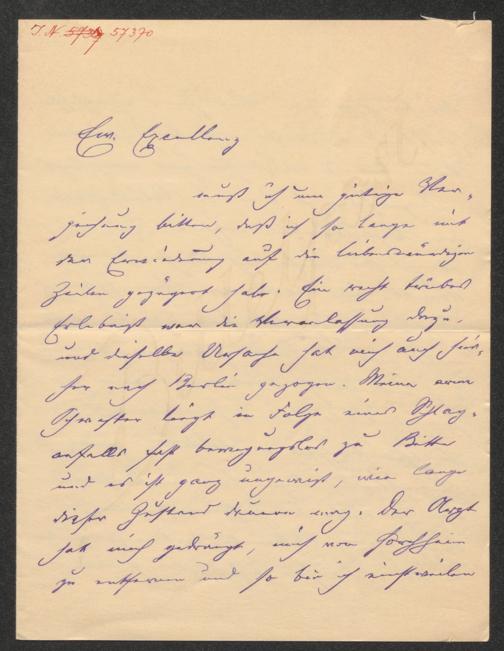 J.N. 57370
Ew. Excellenz
muß ich um gütige Ver-
zeihung bitten, daß ich so lange mit
der Erwiederung auf die liebenswürdigen
Zeilen gezögert habe. Ein recht trübes
Erlebniß war die Veranlassung dazu,
und dieselbe Ursache hat mich auch hier-
her nach Berlin gezogen. Meine arme
Schwester liegt in Folge eines Schlag-
anfalls fast bewegungslos zu Bette
und es ist ganz ungewiß, wie lange
dieser Zustand dauern mag. Der Arzt
hat mich gedrängt, mich von
zu entfernen und so bin ich einstweilen